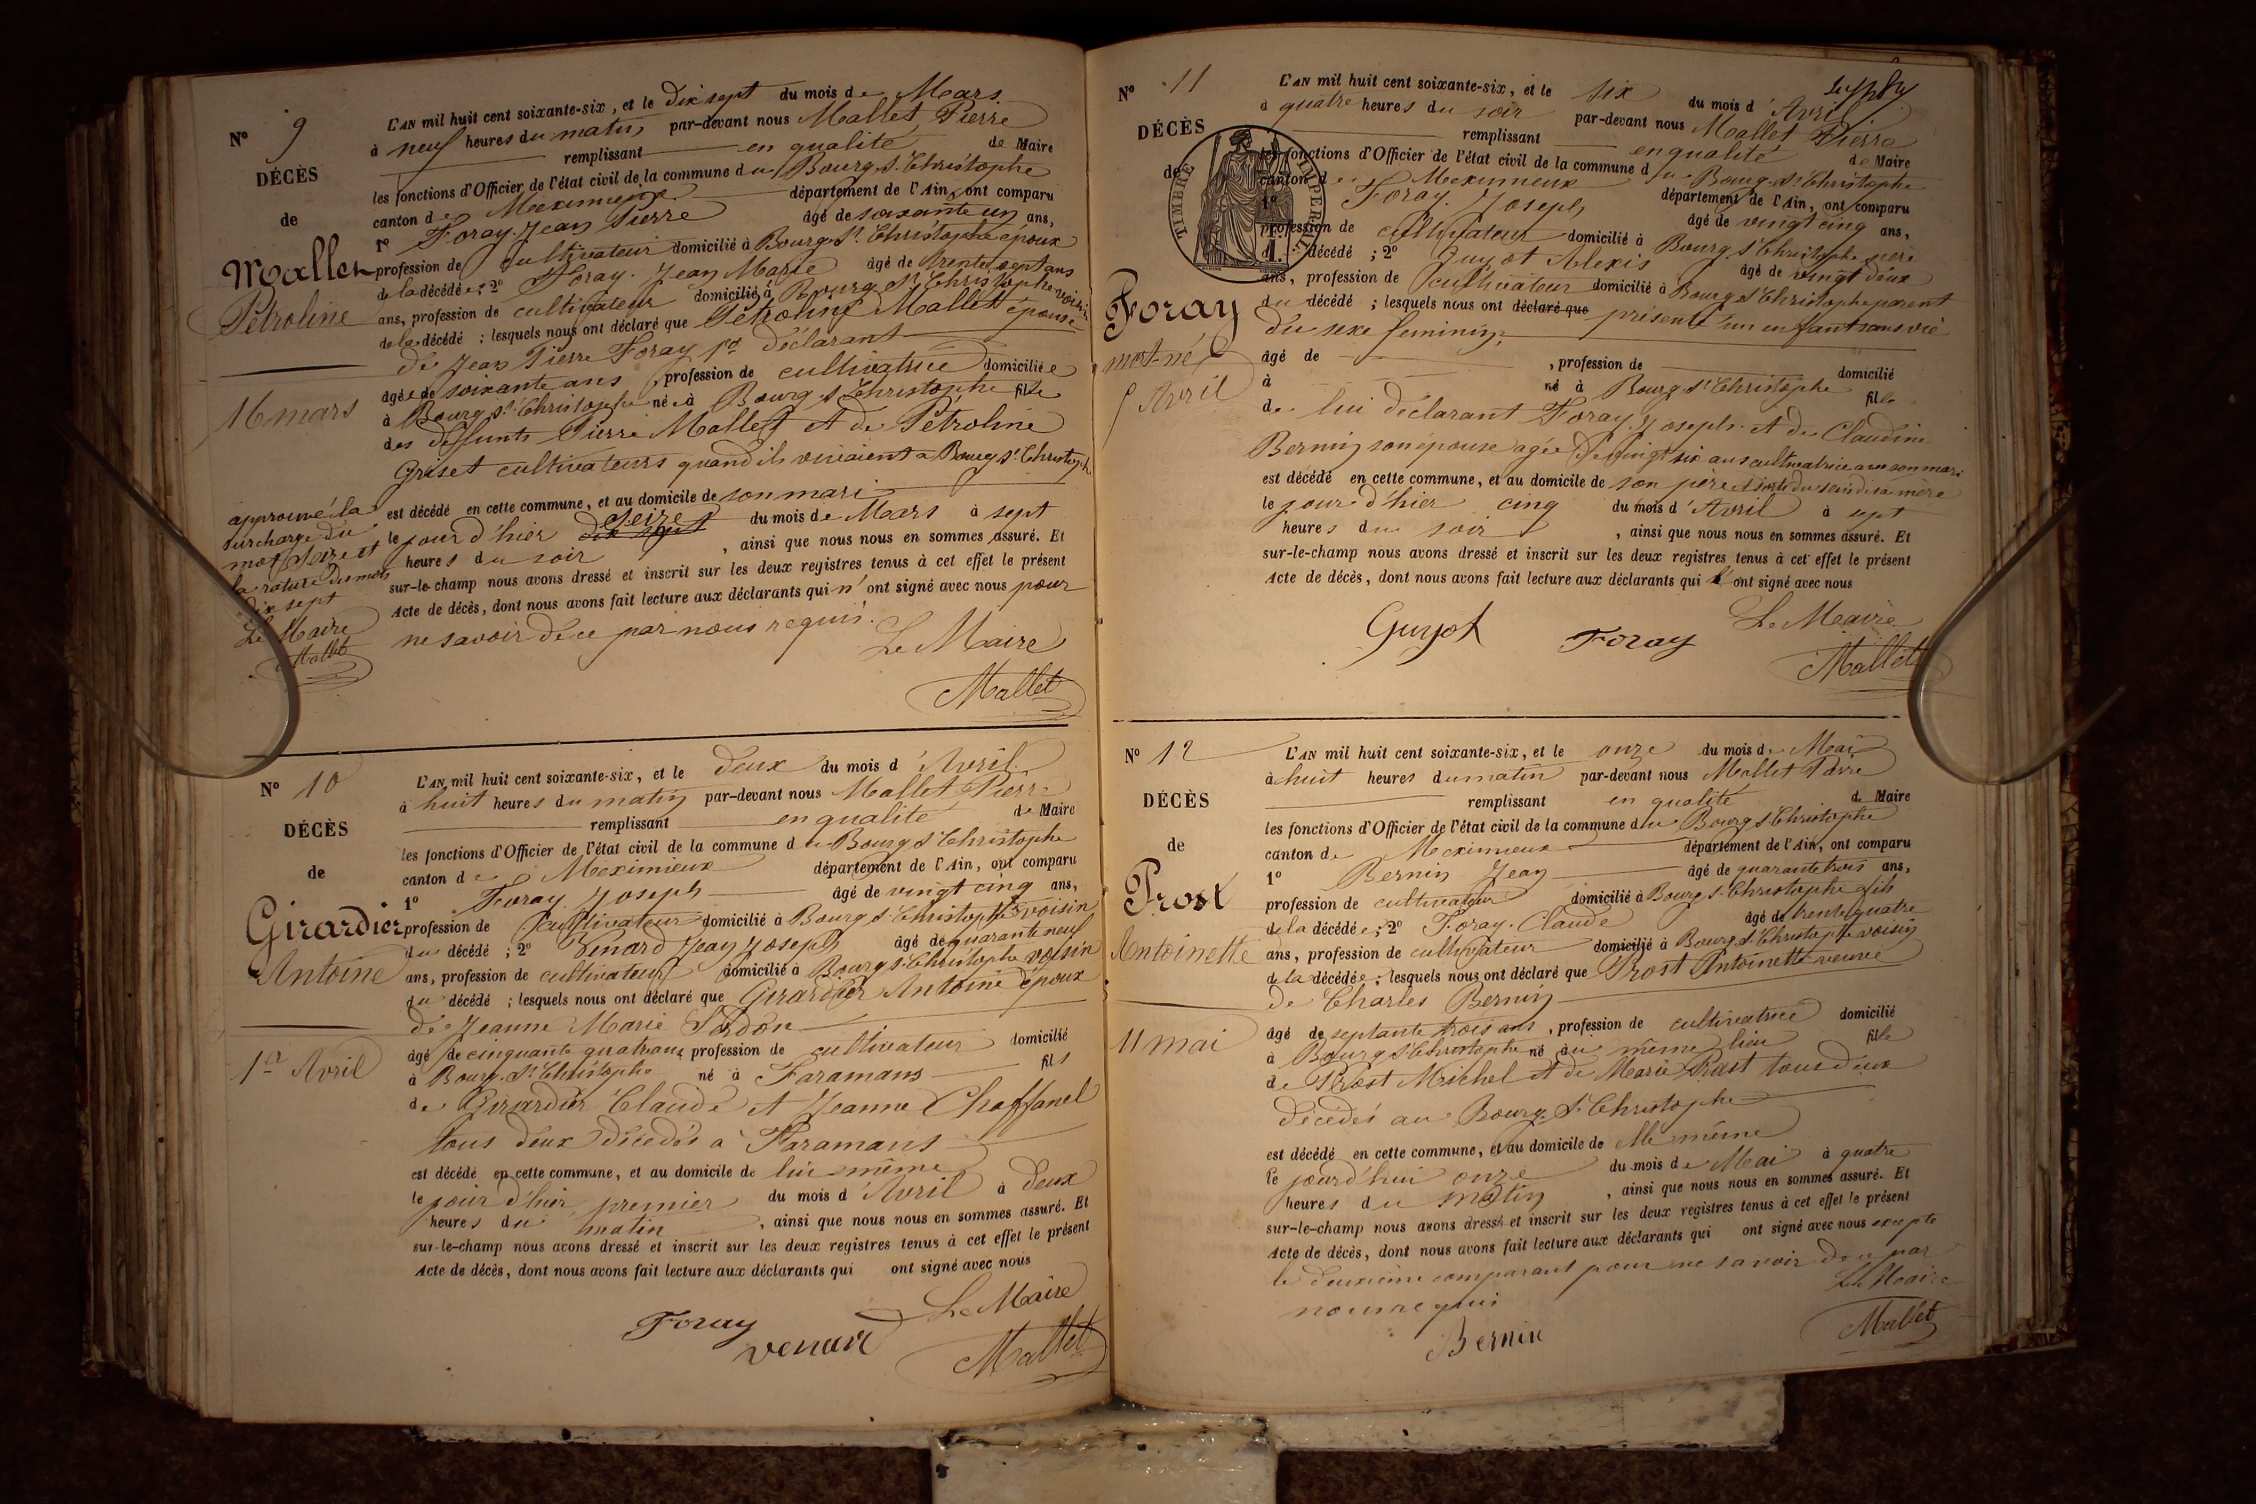 N° 9
DÉCÈS
de
Mallet
Pétroline
16 mars
L'AN mil huit cent soixante-six, et le dix sept du mois de Mars
à neuf heures du matin par-devant nous Mallet Pierre
remplissant en qualité de Maire
les fonctions d'Officier de l'état civil de la commune du Bourg St Christophe
canton de Meximieux département de l'Ain, ont comparu
1° Foray Jean Pierre âgé de soixante un ans,
profession de cultivateur domicilié à Bourg St Christophe époux
de la décédée ; 2° Foray Jean Marie âgé de trente sept ans
ans, profession de cultivateur domicilié à Bourg St Christophe voisin
de la décédé ; lesquels nous ont déclaré que Pétroline Mallet épouse
de Jean Pierre Foray 1er déclarant
âgée de soixante ans, profession de cultivatrice domiciliée
à Bourg St Christophe né à Bourg St Christophe fille
des deffunts Pierre Mallet et de Pétroline
Griset cultivateurs quand ils vivaient à Bourg St Christophe
est décédé en cette commune, et au domicile de son mari
le jour d'hier dix sept seize du mois de Mars à sept
heures du soir, ainsi que nous nous en sommes assuré. Et
sur-le-champ nous avons dressé et inscrit sur les deux registres tenus à cet effet le présent
Acte de décès, dont nous avons fait lecture aux déclarants qui n'ont signé avec nous pour
ne savoir de ce par nous requis.
Le Maire
Mallet
approuvé la
surcharge du
mot seize et
la rature du mot
dix sept
Le Maire
Mallet
N° 10
DÉCÈS
de
Girardier
Antoine
1er Avril
L'AN mil huit cent soixante-six, et le deux du mois d'Avril
à huit heures du matin par-devant nous Mallet Pierre
remplissant en qualité de Maire
les fonctions d'Officier de l'état civil de la commune du Bourg St Christophe
canton de Meximieux département de l'Ain, ont comparu
1° Foray Joseph âgé de vingt cinq ans,
profession de cultivateur domicilié à Bourg St Christophe voisin
du décédé ; 2° Venard Jean Joseph âgé de quarante neuf
ans, profession de cultivateur domicilié à Bourg St Christophe voisin
du décédé ; lesquels nous ont déclaré que Girardier Antoine époux
de Jeanne Marie
âgé de cinquante quatre ans, profession de cultivateur domicilié
à Bourg St Christophe né à Faramans fils
de Girardier Claude et Jeanne Chaffanel
tous deux décédés à Faramans
est décédé en cette commune, et au domicile de lui même
le jour d'hier premier du mois d'Avril à deux
heures du matin, ainsi que nous nous en sommes assuré. Et
sur-le-champ nous avons dressé et inscrit sur les deux registres tenus à cet effet le présent
Acte de décès, dont nous avons fait lecture aux déclarants qui ont signé avec nous
Le Maire
Foray
venard
Mallet
N° 11
DÉCÈS
de
Foray
mort-né
5 Avril
TIMBRE IMPERIAL
L'AN mil huit cent soixante-six, et le six du mois d'Avril
à quatre heures du soir par-devant nous Mallet Pierre
remplissant en qualité de Maire
les fonctions d'Officier de l'état civil de la commune du Bourg St Christophe
canton de Meximieux département de l'Ain, ont comparu
1° Foray Joseph âgé de vingt cinq ans,
profession de cultivateur domicilié à Bourg St Christophe père
du décédé ; 2° Guyot Alexis âgé de vingt deux
ans, profession de cultivateur domicilié à Bourg St Christophe parent
du décédé ; lesquels nous ont déclaré que présenté un enfant sans vie
du sexe feminin,
âgé de , profession de domicilié
à né à Bourg St Christophe fille
de lui déclarant Foray Joseph et de Claudine
Bernin son épouse agée de vingt six ans cultivatrice avec son mari
est décédé en cette commune, et au domicile de son père et sorti du sein de sa mère
le jour d'hier cinq du mois d'Avril à sept
heures du soir, ainsi que nous nous en sommes assuré. Et
sur-le-champ nous avons dressé et inscrit sur les deux registres tenus à cet effet le présent
Acte de décès, dont nous avons fait lecture aux déclarants qui ont signé avec nous
Le Maire
Guyot
Foray
Mallet
N° 12
DÉCÈS
de
Prost
Antoinette
11 mai
L'AN mil huit cent soixante-six, et le onze du mois de Mai
à huit heures du matin par-devant nous Mallet Pierre
remplissant en qualité de Maire
les fonctions d'Officier de l'état civil de la commune du Bourg St Christophe
canton de Meximieux département de l'Ain, ont comparu
1° Bernin Jean âgé de quarante trois ans,
profession de cultivateur domicilié à Bourg St Christophe fils
de la décédée ; 2° Foray Claude âgé de trente quatre
ans, profession de cultivateur domicilié à Bourg St Christophe voisin
de la décédée ; lesquels nous ont déclaré que Prost Antoinette veuve
de Charles Bernin
âgé de septante trois ans, profession de cultivatrice domicilié
à Bourg St Christophe né au même lieu fille
de Prost Michel et de Marie Prost tous deux
décédés au Bourg St Christophe
est décédé en cette commune, et au domicile de elle même
le jourd'hui onze du mois de Mai à quatre
heures du matin, ainsi que nous nous en sommes assuré. Et
sur-le-champ nous avons dressé et inscrit sur les deux registres tenus à cet effet le présent
Acte de décès, dont nous avons fait lecture aux déclarants qui ont signé avec nous excepté
le deuxième comparant pour ne savoir de ce par
nous requis
Le Maire
Bernin
Mallet